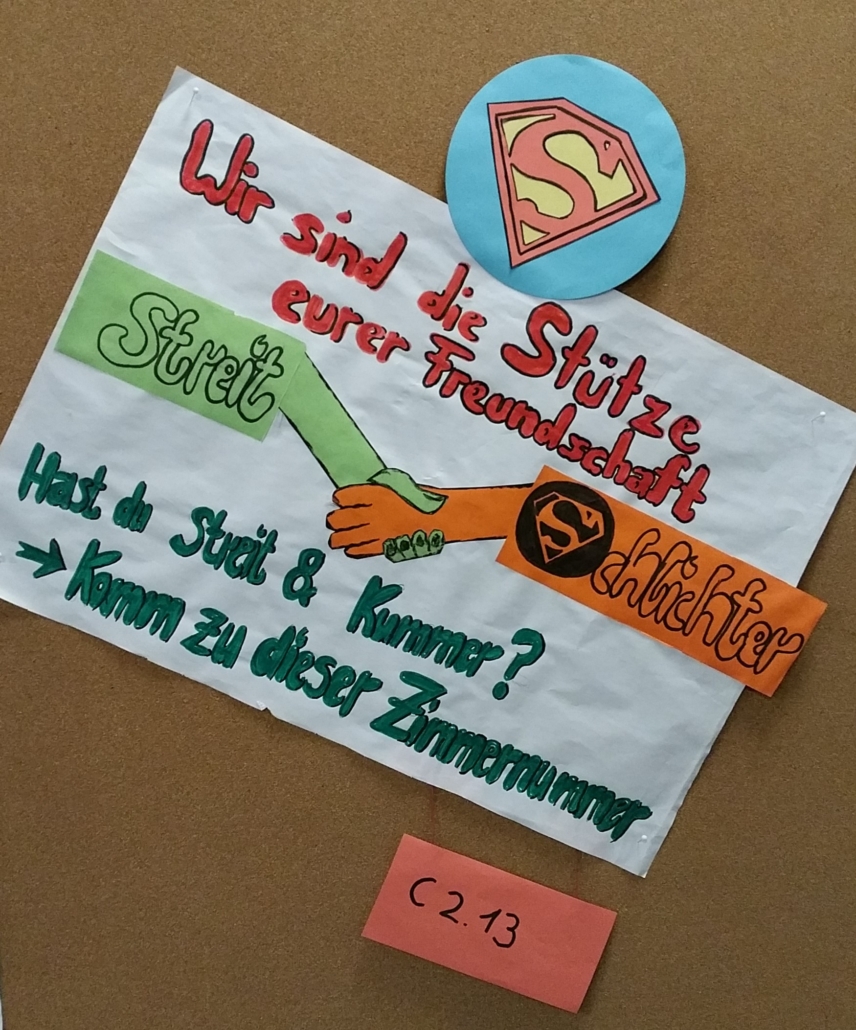 S
Wir sind die Stütze
eurer Freundschaft
Streit
Schlichter
Hast du Streit & Kummer?
→ Komm zu dieser Zimmernummer
C 2.13